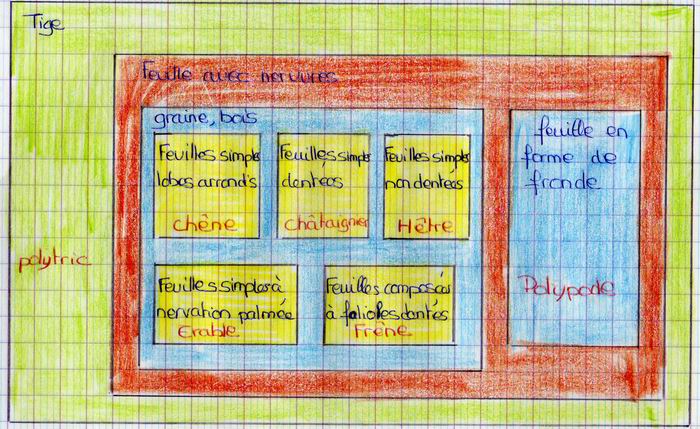 Tige
Feuille avec nervures
graine, bois
Feuilles simples
lobes arrondis
chêne
Feuilles simples
dentées
châtaignier
Feuilles simples
non dentées
Hêtre
feuille en
forme de
fronde
Polypode
polytric
Feuilles simples à
nervation palmée
Erable
Feuilles composées
à folioles dentées
Frêne